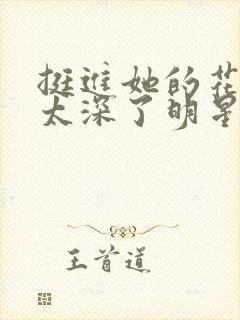 挺进她的花
太深了明星
王首道